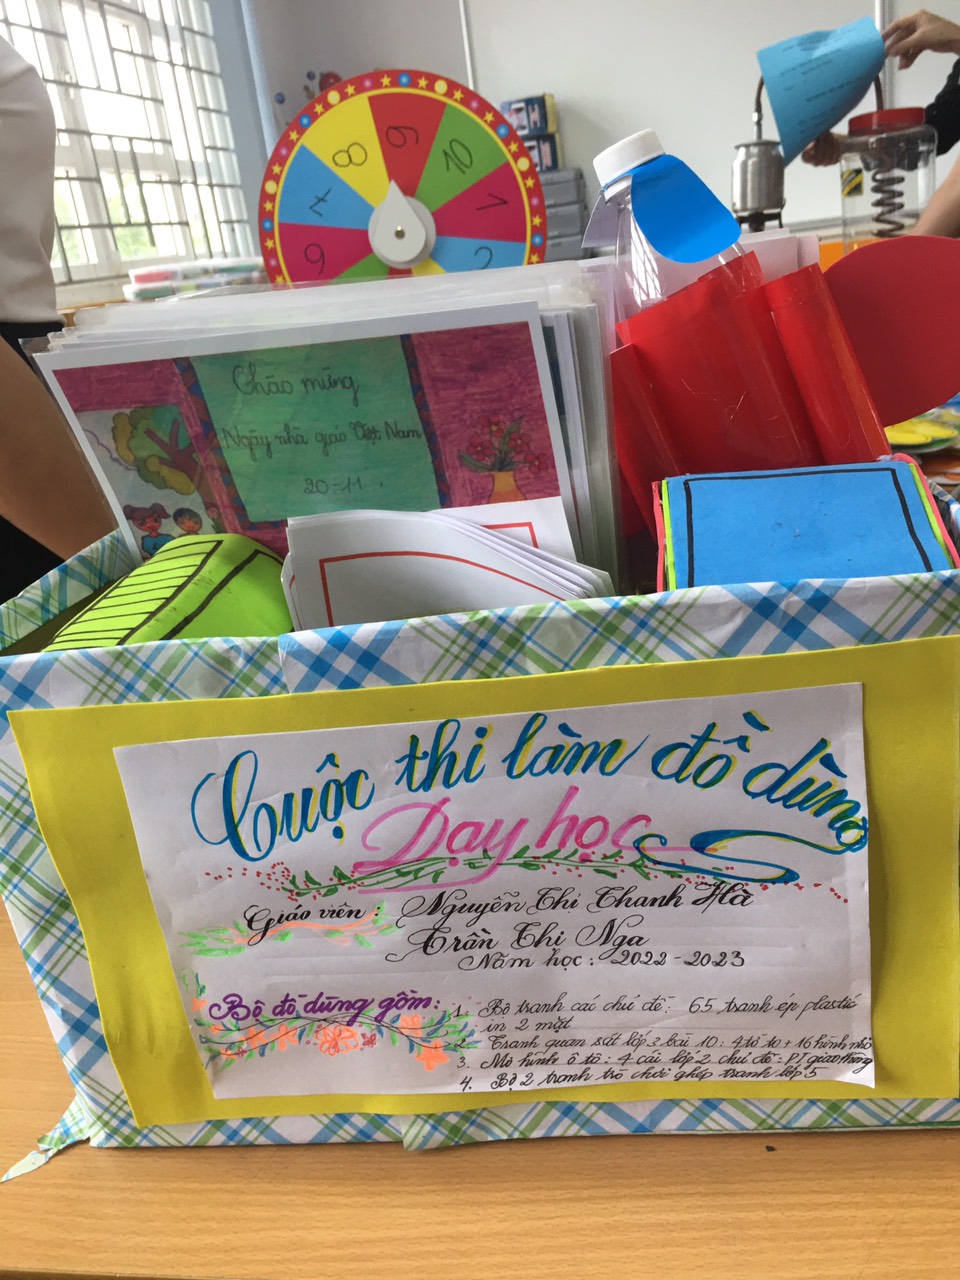 7
8
9
10
1
2
6
Chào mừng
Ngày nhà giáo Việt Nam
20-11.
Cuộc thi làm đồ dùng
Dạy học
Giáo viên: Nguyễn Thị Thanh Hà
Trần Thị Nga
Năm học: 2022-2023
Bộ đồ dùng gồm:
1. Bộ tranh các chủ đề: 65 tranh ép plastic
in 2 mặt
2. Tranh quan sát lớp 3 bài 10: 4 tờ to + 16 hình nhỏ
3. Mô hình ô tô: 4 cái lớp 2 chủ đề: PT giao thông
4. Bộ 2 tranh trò chơi ghép tranh lớp 5